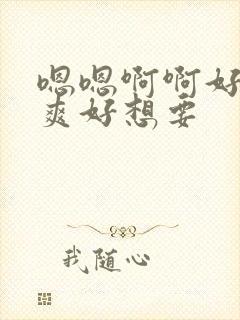 嗯嗯啊啊好
爽好想要
我随心